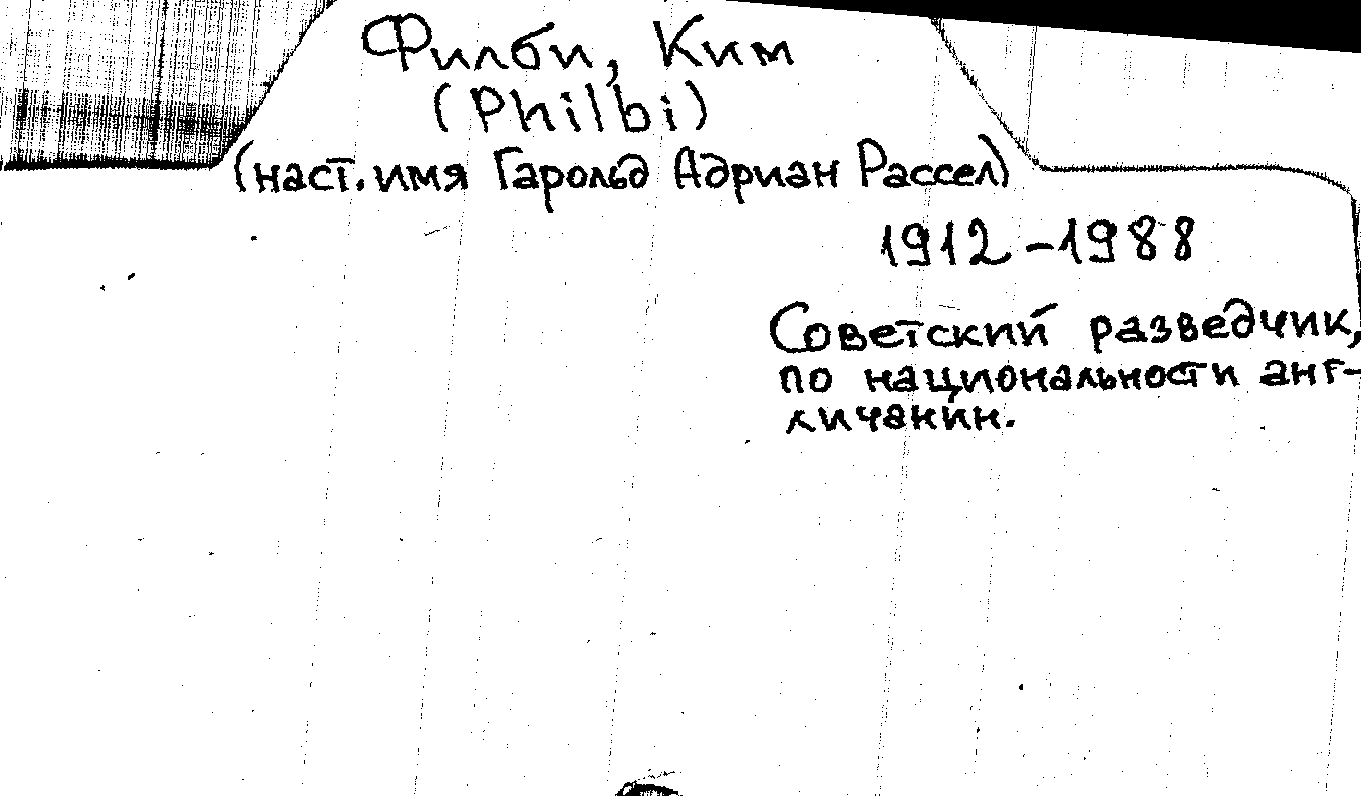 Филби, Ким
(Philbi)
(наст. имя Гарольд Адриан Рассел)
1912-1988
Советский разведчик,
по национальности анг-
личанин.